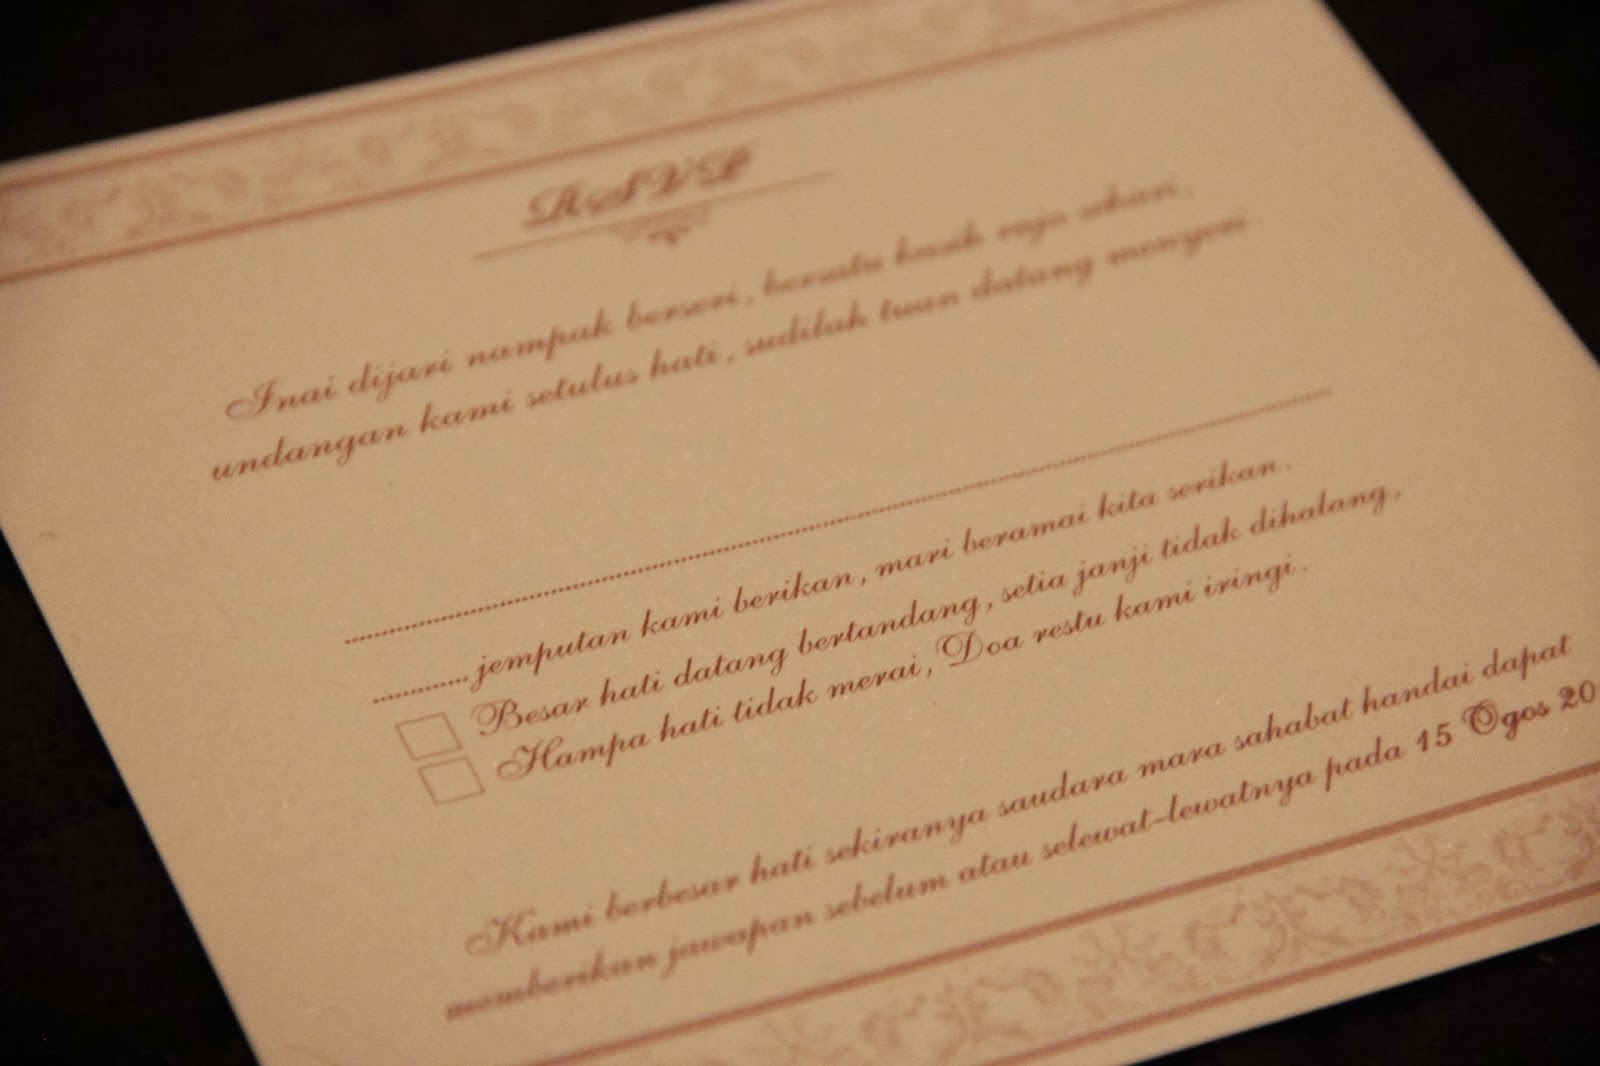 RSVP
Inai dijari nampak berseri, bersatu kasih raja sehari.
undangan kami setulus hati, sudilah tuan datang menyeri.
jemputan kami berikan, mari beramai kita serikan.
Besar hati datang bertandang, setia janji tidak dihalang,
Hampa hati tidak merai, Doa restu kami iringi.
Kami berbesar hati sekiranya saudara mara sahabat handai dapat
memberikan jawapan sebelum atau selewat-lewatnya pada 15 Ogos 20